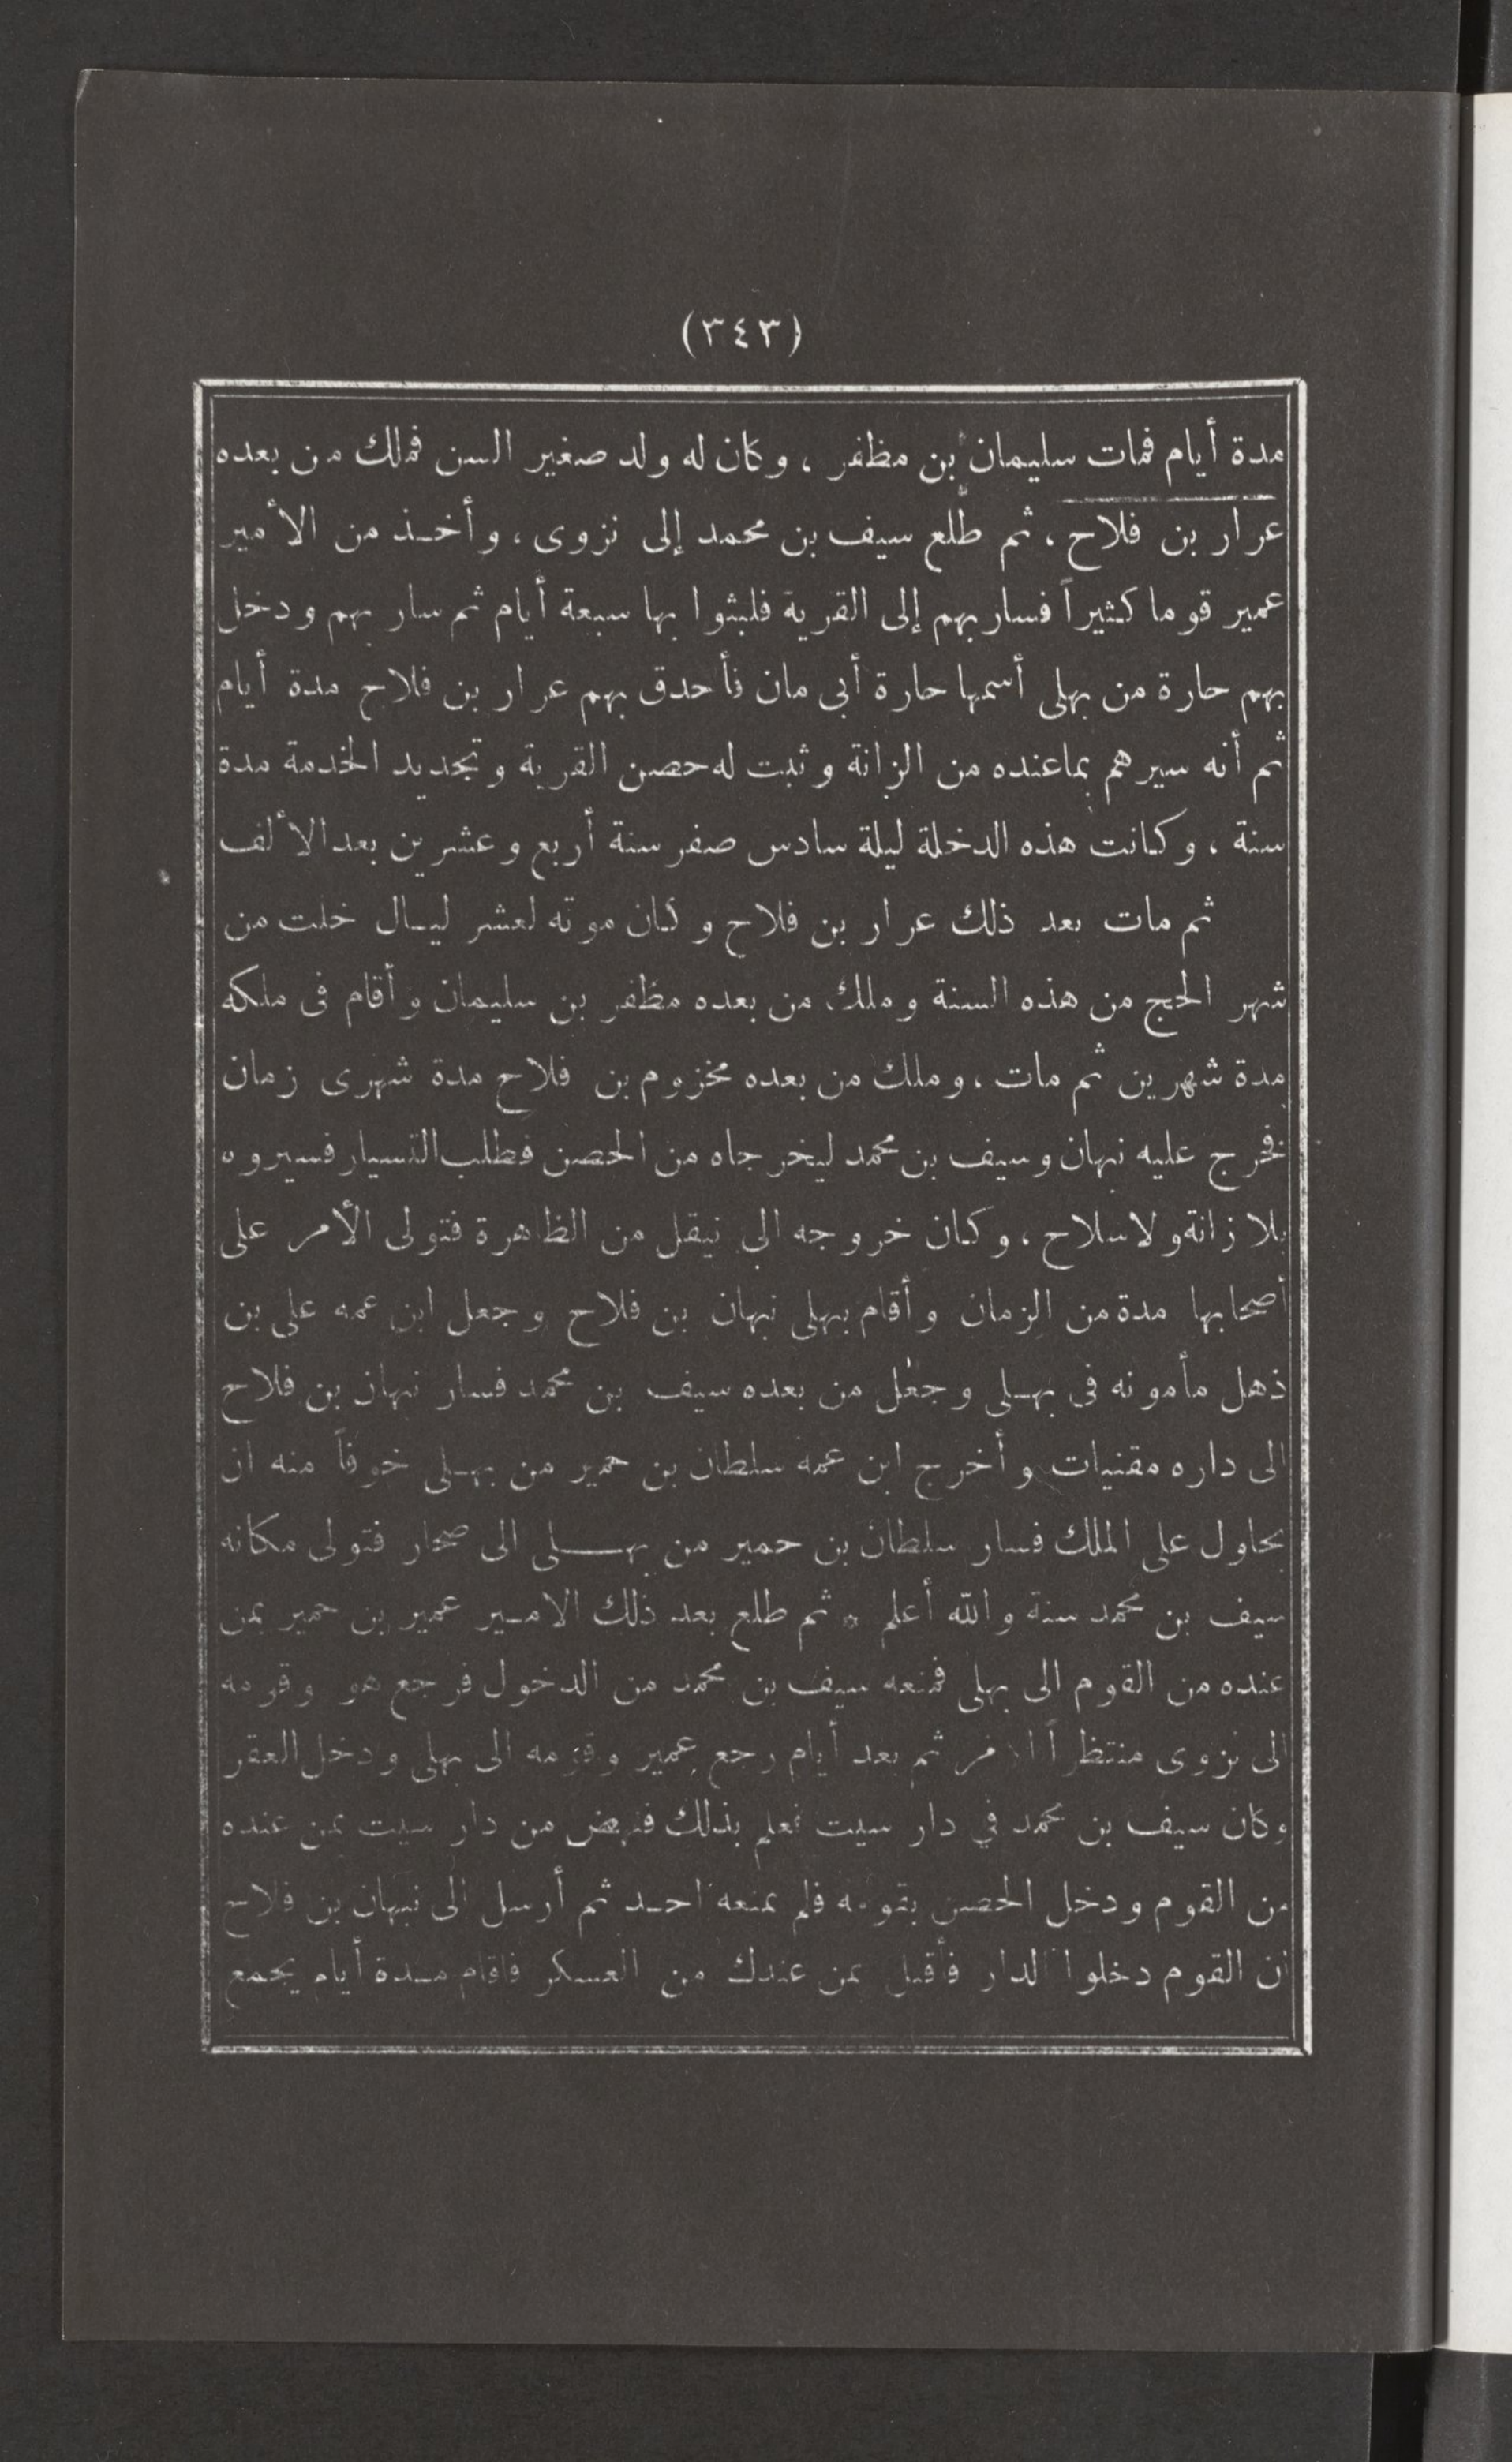 (٣٤٣)
مدة أيام فمات سليمان بن مظفر ، وكان له ولد صغير السن فملك من بعده
عرار بن فلاح ، ثم طلع سيف بن محمد إلى نزوى ، وأخذ من الأمير
عمير قوما كثيراً فسار بهم إلى القرية فلبثوا بها سبعة أيام ثم سار بهم ودخل
بهم حارة من بهلى أسمها حارة أبى مان فأحدق بهم عرار بن فلاح مدة أيام
ثم أنه سيرهم بماعنده من الزانة وثبت له حصن القرية وتجديد الخدمة مدة
سنة ، وكانت هذه الدخلة ليلة سادس صفر سنة أربع وعشرين بعد الألف
ثم مات بعد ذلك عرار بن فلاح وكان موته لعشر ليال خلت من
شهر الحج من هذه السنة وملك من بعده مظفر بن سليمان وأقام فى ملكه
مدة شهرين ثم مات ، وملك من بعده مخزوم بن فلاح مدة شهرى زمان
فخرج عليه نبهان وسيف بن محمد ليخرجاه من الحصن فطلب التسيار فسيروه
بلا زانة ولا سلاح ، وكان خروجه الى نيقل من الظاهرة فتولى الأمر على
أصحابها مدة من الزمان وأقام ببهلى نبهان بن فلاح وجعل ابن عمه على بن
ذهل مأمونه فى بهلى وجعل من بعده سيف بن محمد فسار نبهان بن فلاح
الى داره مقنيات وأخرج ابن عمه سلطان بن حمير من بهلى خوفاً منه ان
يحاول على الملك فسار سلطان بن حمير من بهلى الى صحار فتولى مكانه
سيف بن محمد سنة والله أعلم * ثم طلع بعد ذلك الامير عمير بن حمير بمن
عنده من القوم الى بهلى فمنعه سيف بن محمد من الدخول فرجع هو وقومه
الى نزوى منتظراً الامر ثم بعد أيام رجع عمير وقومه الى بهلى ودخل العقر
وكان سيف بن محمد في دار سيت فعلم بذلك فنهض من دار سيت بمن عنده
من القوم ودخل الحصن بقومه فلم يمنعه احد ثم أرسل الى نبهان بن فلاح
ان القوم دخلوا الدار فأقبل بمن عندك من العسكر فاقام مدة أيام يجمع